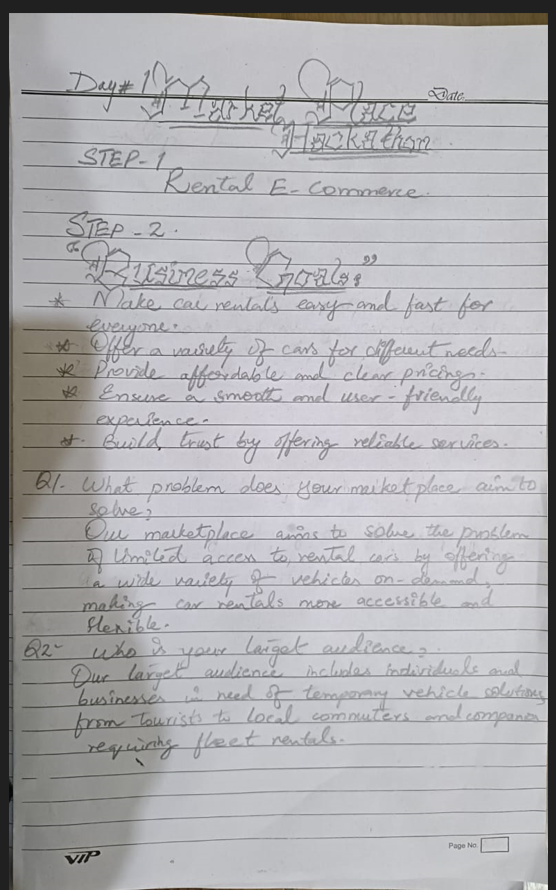 Day# 1 Market Place
Date
Hackathon
STEP-1
Rental E-Commerce.
STEP-2.
"Business Goals"
* Make car rentals easy and fast for
everyone.
* Offer a variety of cars for different needs-
* Provide affordable and clear pricings.
* Ensure a smooth and user-friendly
experience.
* Build trust by offering reliable services.
Q1. What problem does your marketplace aim to
solve?
Our marketplace aims to solve the problem
of limited access to rental cars by offering
a wide variety of vehicles on-demand,
making car rentals more accessible and
flexible.
Q2- Who is your target audience?
Our target audience includes individuals and
businesses in need of temporary vehicle solutions
from tourists to local commuters and companies
requiring fleet rentals.
VIP
Page No.